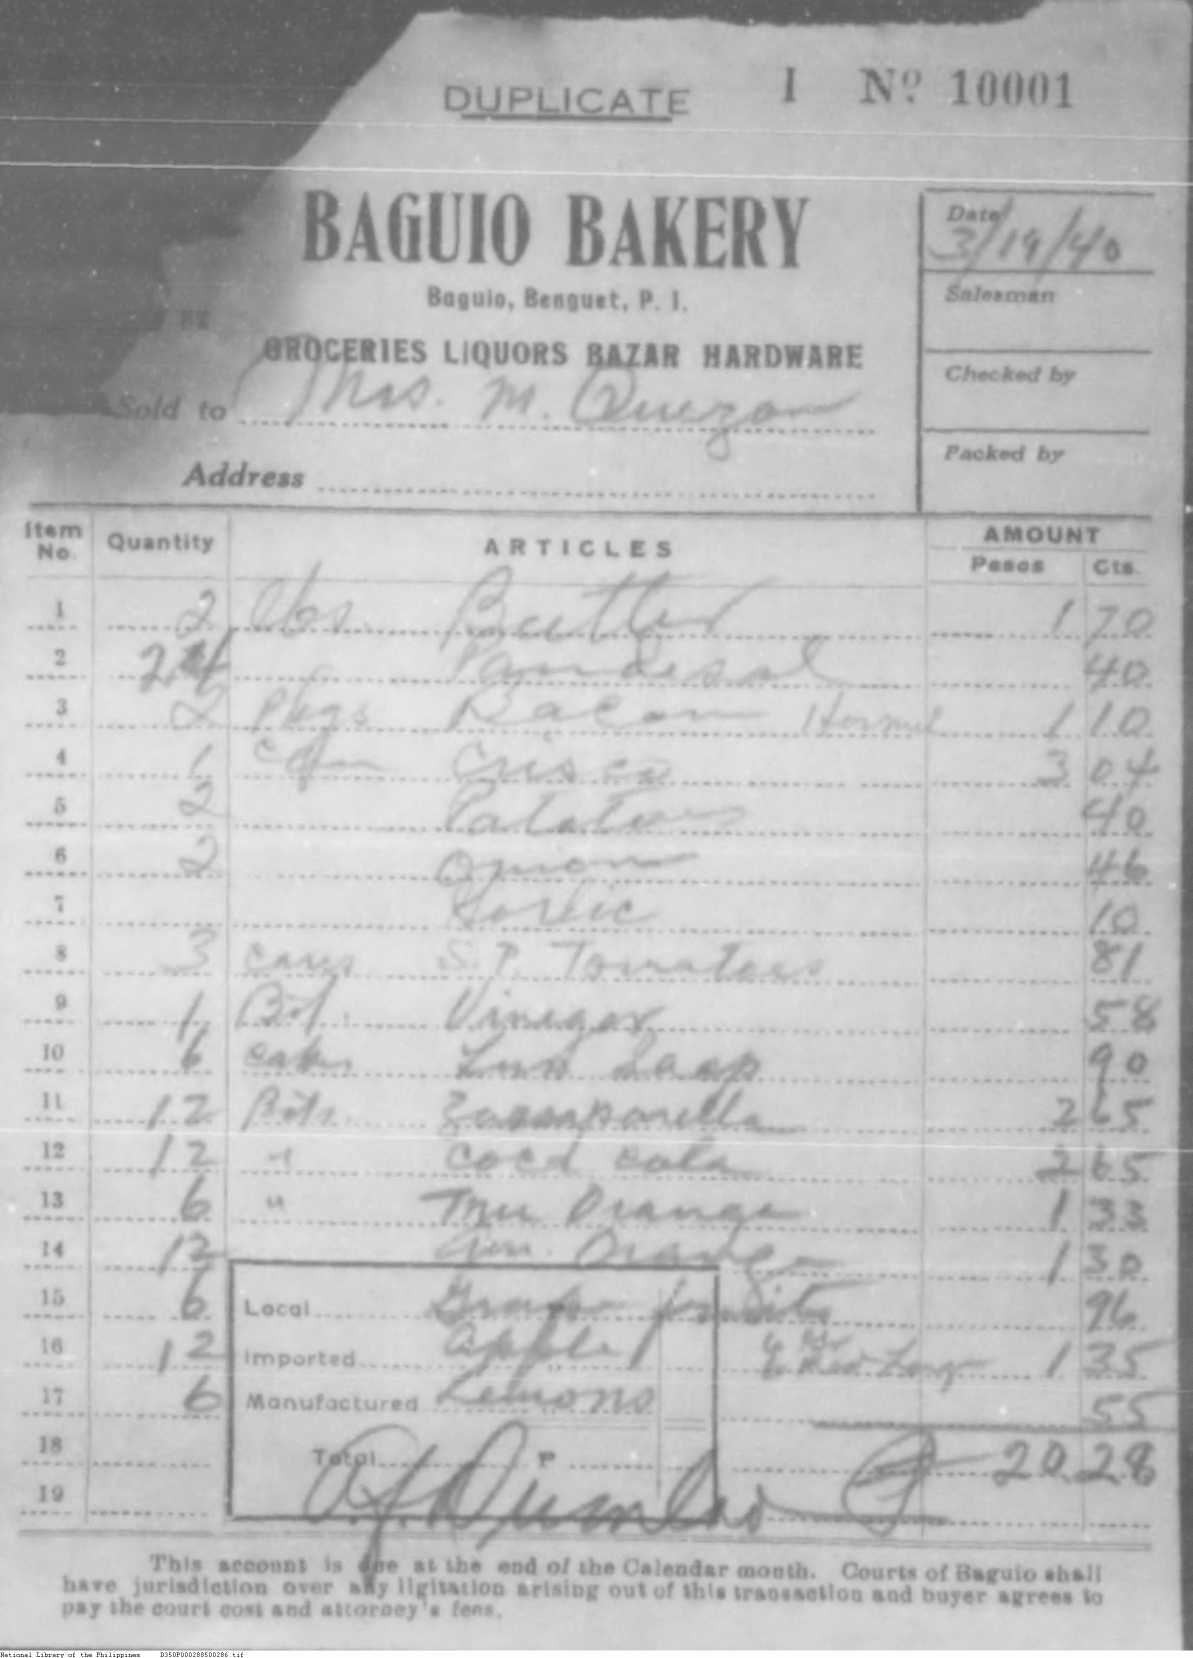 DUPLICATE I Nº 10001
BAGUIO BAKERY
Baguio, Benguet, P. I.
GROCERIES LIQUORS BAZAR HARDWARE
Sold to Mrs. M. Quezon
Address
Date 3/19/40
Salesman
Checked by
Packed by
Item No. Quantity ARTICLES AMOUNT Pesos Cts.
1 2 lbs. Butter 1 70
2 24 Pan de sal 40
3 2 Pkgs Bacon Hormel 1 10
4 1 Crisco 3 04
5 2 Patatoes 40
6 2 Onion 46
7 Garlic 10
8 3 cans S.P. Tomatoes 81
9 1 Bot. Vinegar 58
10 6 cakes Lux Soap 90
11 12 Bots. Zarzaparella 2 65
12 12 " Coca Cola 2 65
13 6 " Tru Orange 1 33
14 12 Orange 1 30
15 6 Grape fruits 96
16 12 Apple 1 35
17 6 Lemons 55
18 20.28
19
Local
Imported
Manufactured
Total P
This account is due at the end of the Calendar month. Courts of Baguio shall
have jurisdiction over any ligitation arising out of this transaction and buyer agrees to
pay the court cost and attorney's fees.
National Library of the Philippines D350P000288500286.tif